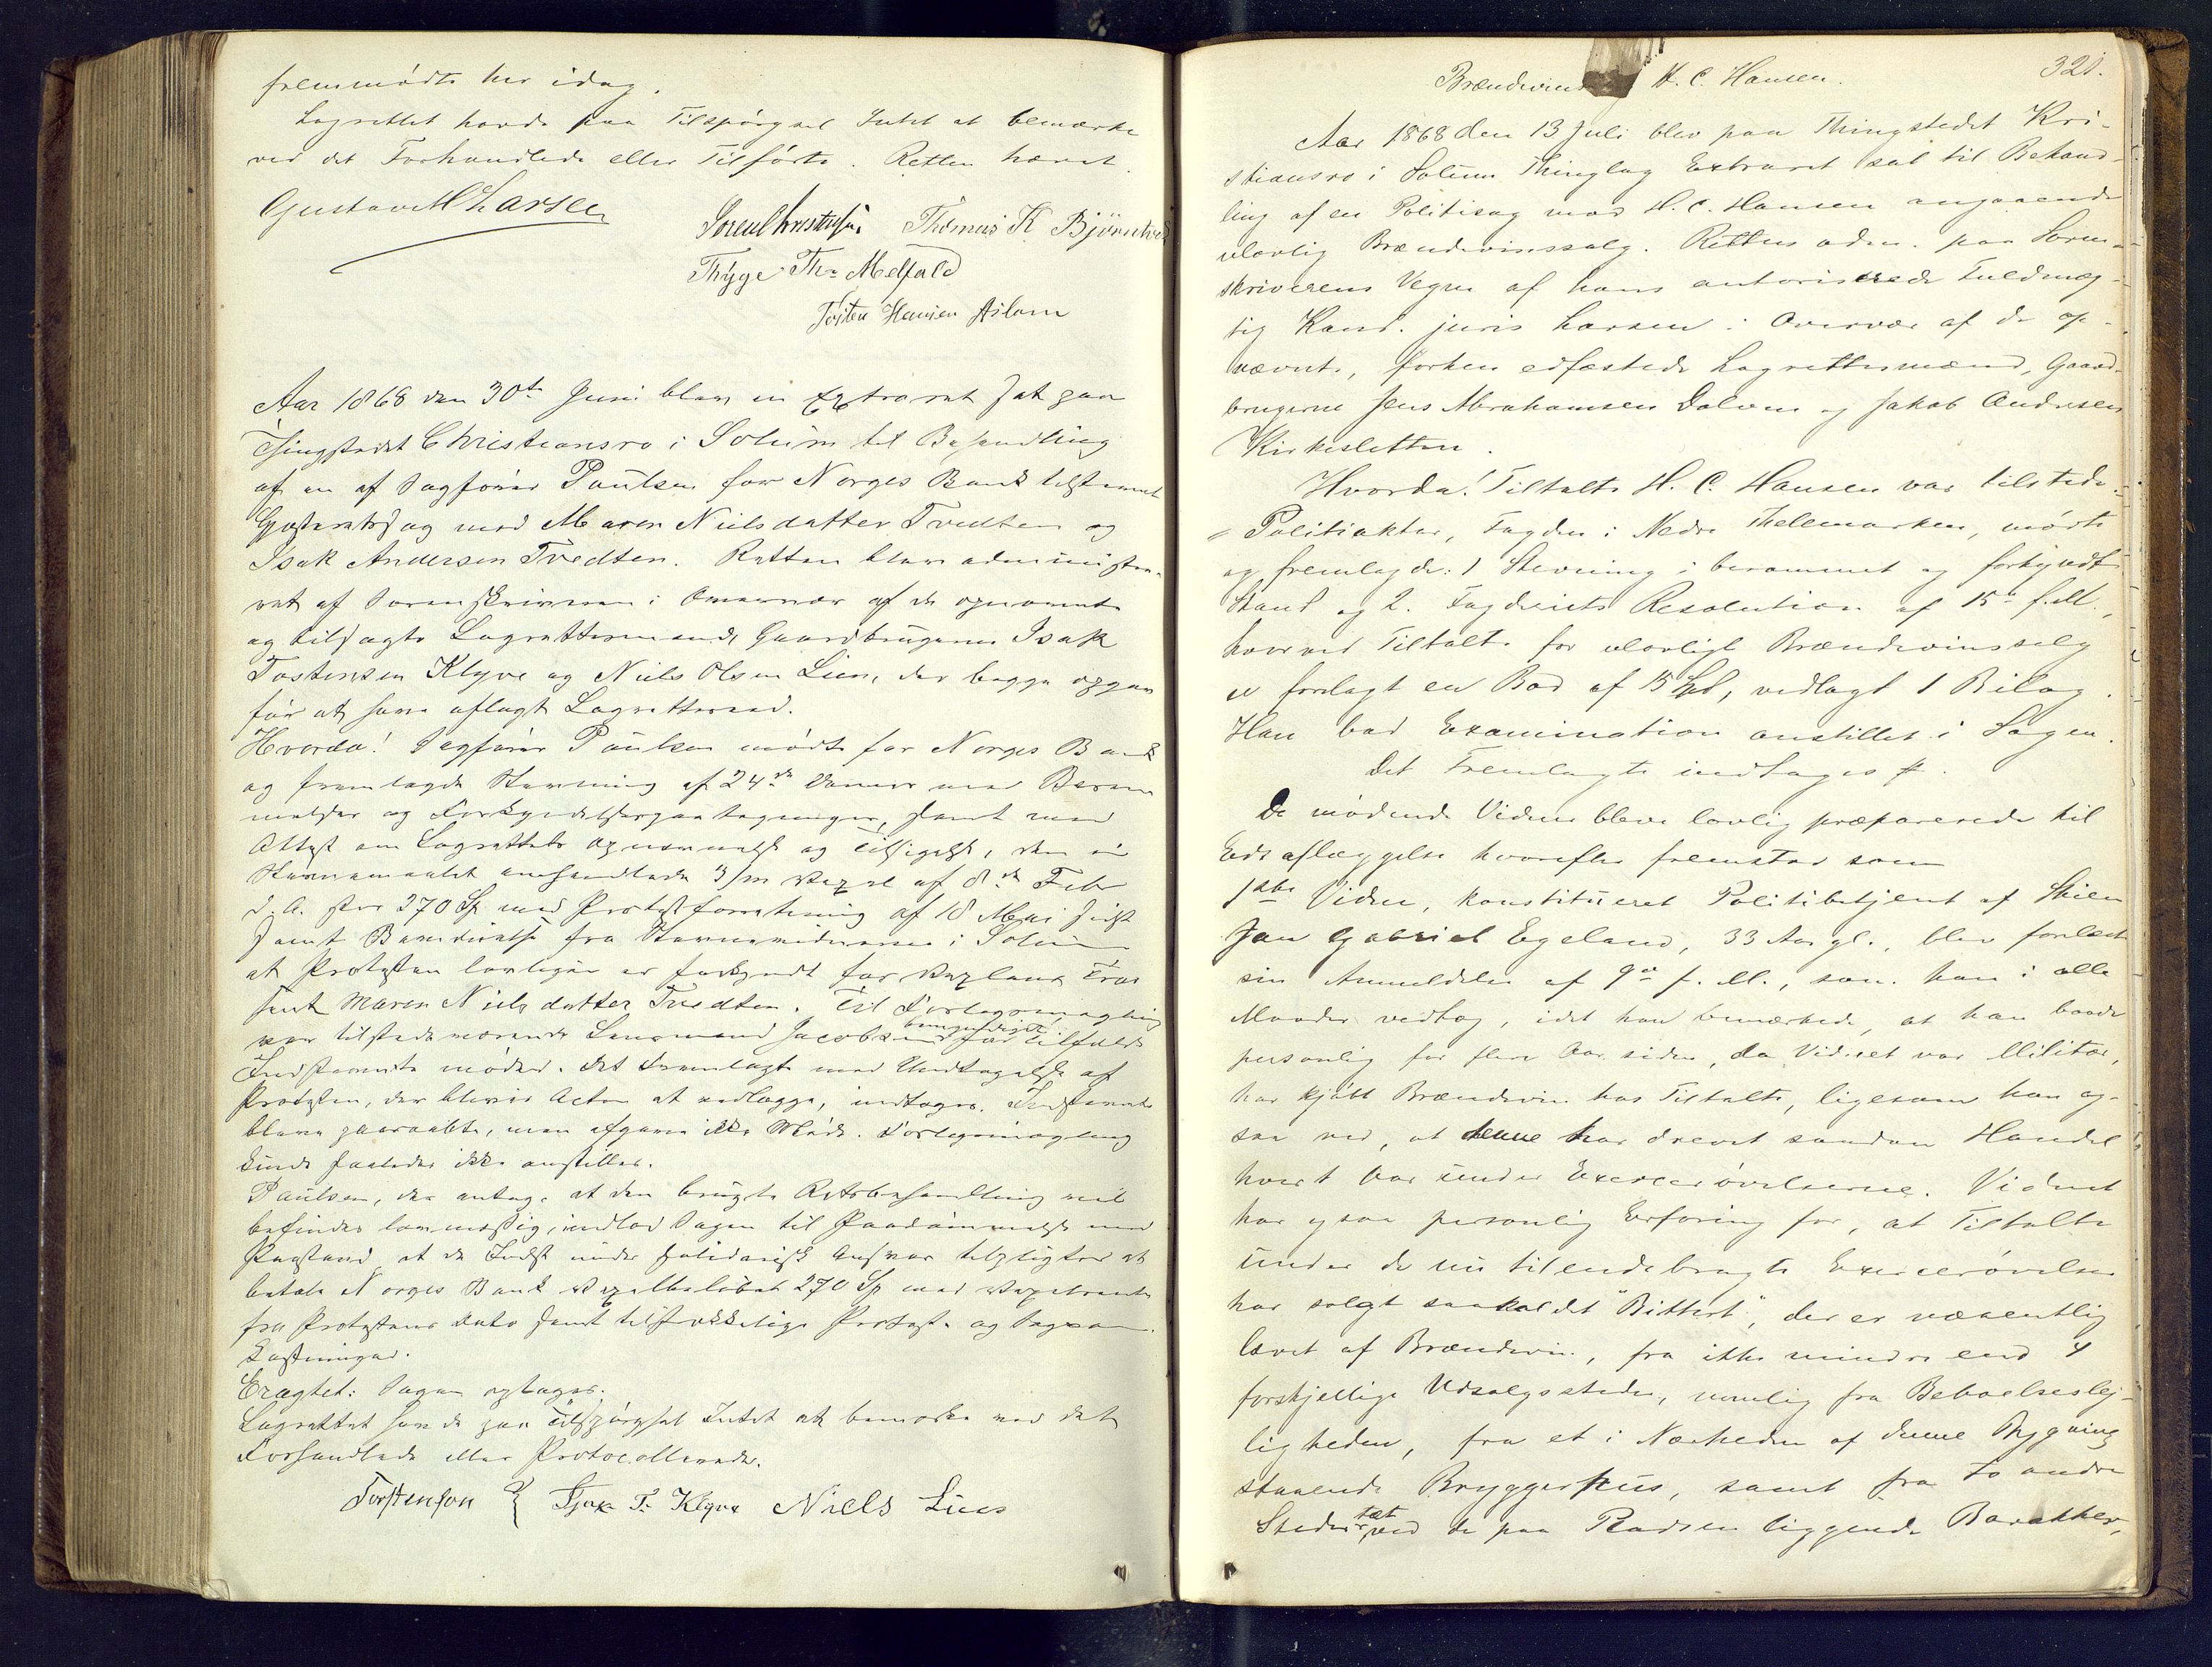 fremmødte her idag.
Lagrettet havde paa Tilspørgsel Intet at bemærke
ved det Forhandlede eller Tilførte. Retten hævet.
Gustav M Larsen
Søren Christensen Thomas K Bjørntvedt
Thyge Th. Melfald
Aar 1868 den 30te Juni blev en Extraret sat paa
Thingstedet Christiansro i Solum til Behandling
af en af Sagfører Paulsen for Norges Bank udstevnet
Gjæsteretssag mod Maren Nielsdatter Tvedten og
Isak Andersen Tvedten. Retten blev administre-
ret af Sorenskriveren i Overvær af de opnævnte
og tilsagte Lagrettesmænd, Gaardbrugerne Isak
Tostensen Klyve og Niels Olsen Lien, der begge opgav
før at have aflagt Lagretteseed.
Hvorda! Sagfører Paulsen mødte for Norges Bank
og fremlagde Stevning af 24de dennes med Beram-
melses og Forkyndelsespaategninger, samt med
Attest om Lagrettets Opnævnelse og Tilsigelse, den i
Stevnemaalet omhandlede 3/m Vexel af 8de Febr
d. A. stor 270 Sp med Protestforretning af 18 Mai sidst
samt Bevidnelse fra Stevnevidnerne i Solum
at Protesten lovligen er forkyndt for Vexlens Tras-
sent Maren Nielsdatter Tvedten. Til Forligsmægling
var tilstedeværende Lensmand Jacobsen beægidiget for Tilfælde
Indstevnte møder. Det Fremlagte med Undtagelse af
Protesten, der bliver Acten at vedlægge, indtages. Indstevnte
bleve paaraabte, men afgave ikke Møde. Forligsmægling
kunde saaledes ikke anstilles.
Paulsen, der antog at den brugte Retsbehandling vil
befindes lovmæssig, indlod Sagen til Paadømmelse med
Paastand at de Indst. under solidarisk Ansvar tilpligtes at
betale Norges Bank Vexelbeløbet 270 Sp med Vexelrente
fra Protestens Dato samt tilstrækkelige Protest- og Sagsom-
kostninger.
Eragtet: Sagen optages.
Lagrettet havde paa Tilspørgsel Intet at bemærke ved det
Forhandlede eller Protocollerede.
Torstenson Isak T. Klyve Niels Lien
321.
Brændevins H. C. Hansen.
Aar 1868 den 13 Juli blev paa Thingstedet Kri-
stiansro i Solum Thinglag Extraret sat til Behand-
ling af en Politisag mod H. C. Hansen angaaende
ulovlig Brændevinssalg. Retten adm. paa Soren-
skriverens Vegne af hans autoriserede Fuldmæg-
tig Kand. juris Larsen i Overvær af de op-
nævnte, forhen edfæstede Lagrettesmænd, Gaard-
brugerne Jens Abrahamsen Dolven og Jakob Andresen
Kirkesletten.
Hvorda! Tiltalte H. C. Hansen var tilstede.
Politiaktor, Fogden i Nedre Thellemarken, mødte
og fremlagde: 1 Stevning i berammet og forkyndt
Stand og 2. Fogderiets Resolution af 15de f. M.,
hvorved Tiltalte for ulovligt Brændevinssalg
er forelagt en Bod af 15 Spd, vedlagt 1 Bilag.
Han bad Examination anstillet i Sagen.
Det Fremlagte indtages
De mødende Vidner bleve lovlig præparerede til
Eds aflæggelse hvorefter fremstod som
1ste Vidne, konstitueret Politibetjent af Skien
Jan Gabriel Egeland, 33 Aar gl., blev forelæst
sin Anmeldelse af 9de f. M., som han i alle
Maader vedtog, idet han bemærkede, at han baade
personlig for flere Aar siden, da Vidnet var Militær,
har kjøbt Brændevin hos Tiltalte, ligesom han og-
saa ved, at denne har drevet saadan Handel
hvert Aar under Exercerøvelserne. Vidnet
har ogsaa personlig Erfaring for, at Tiltalte
under de nu tilendebragte Exercerøvelser
har solgt saakaldet "Bittert", der er væsentlig
lavet af Brændevin, fra ikke mindre end 4
forskjellige Udsalgssteder, nemlig fra Beboelseslej-
ligheden, fra et i Nærheden af denne Bygning
staaende Bryggerhus, samt fra to andre
Steder tæt ved de paa Pladsen liggende Barakker,